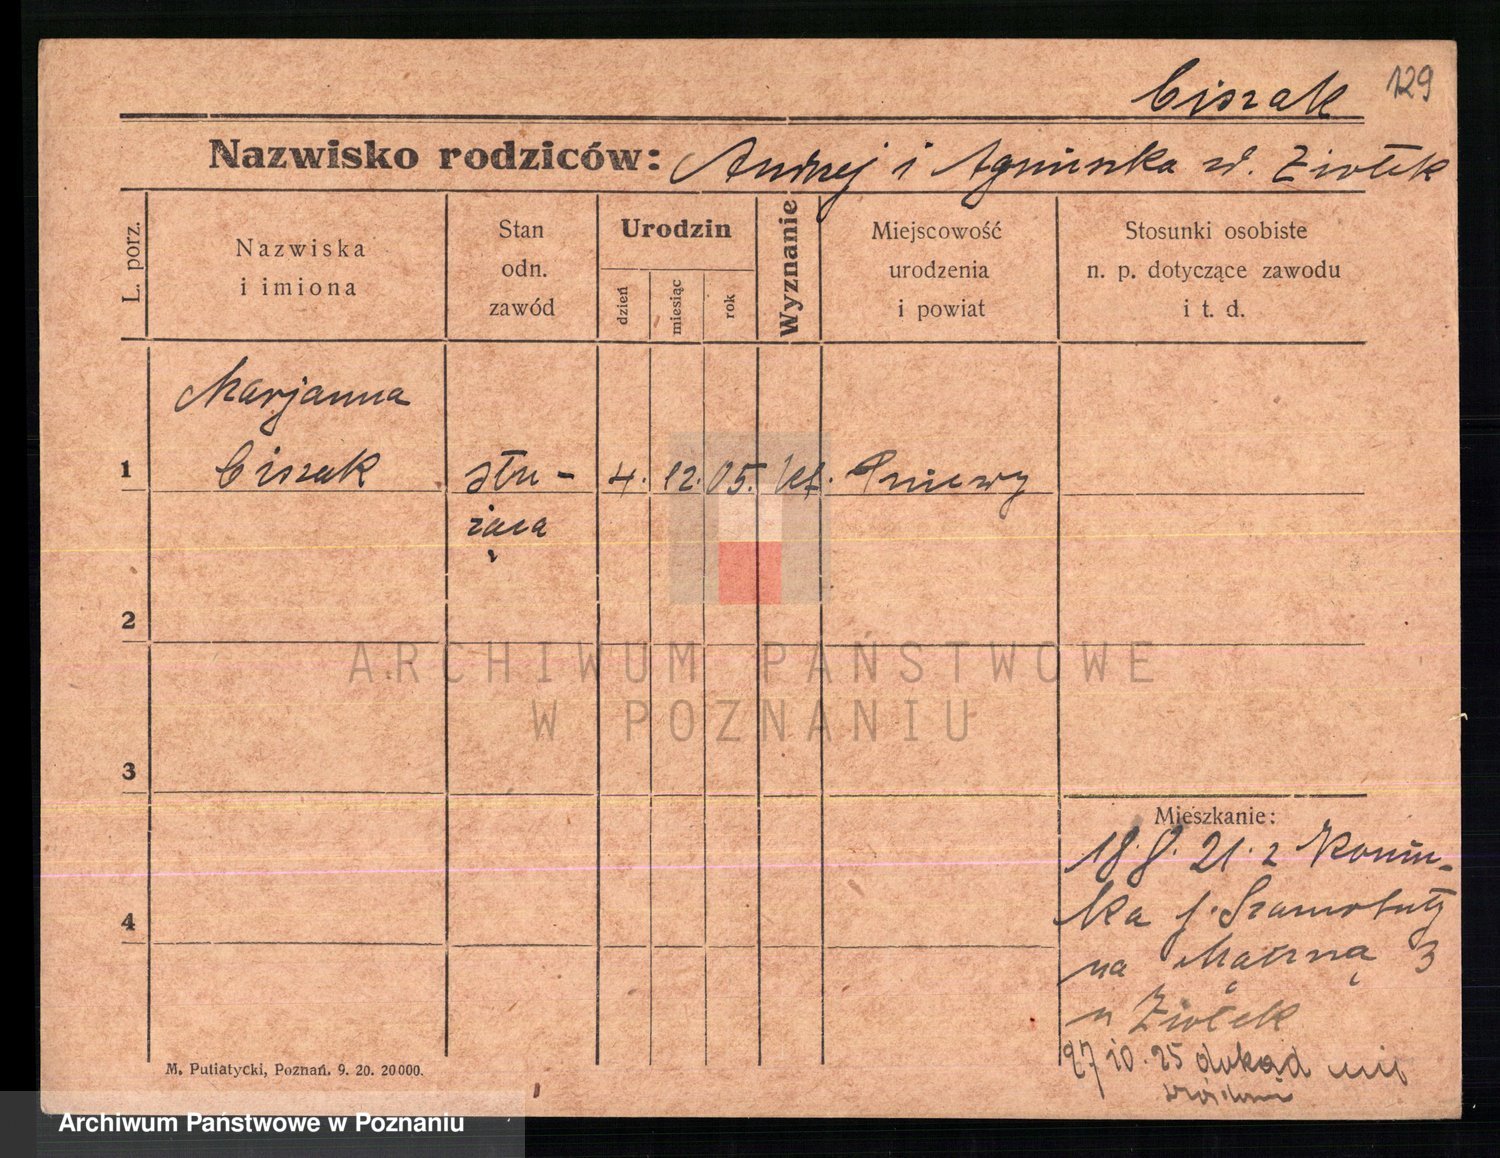 Ciszak 129
Nazwisko rodziców: Andrzej i Agnieszka zd. Ziołek
L. porz.
Nazwiska
i imiona
Stan
odn.
zawód
Urodzin
dzień
miesiąc
rok
Wyznanie
Miejscowość
urodzenia
i powiat
Stosunki osobiste
n. p. dotyczące zawodu
i t. d.
Marjanna
1 Ciszak słu- 4. 12. 05. kt. Pniewy
żąca
2
3
4
Mieszkanie:
18. 8. 21. z Konin-
ka p. Szamotuły
na Mączną 3
u Ziołek
27 10. 25 dokąd nie
M. Putiatycki, Poznań. 9. 20. 20000.
ARCHIWUM PAŃSTWOWE
W POZNANIU
Archiwum Państwowe w Poznaniu